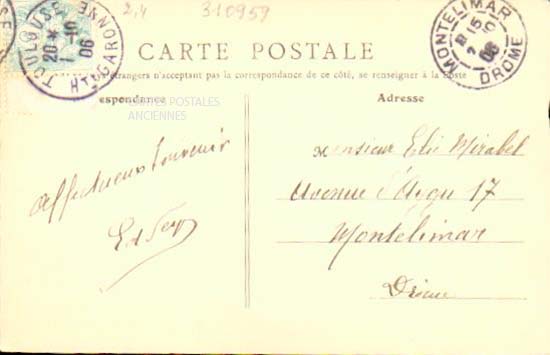 2,4
310959
TOULOUSE
20 * 1-10 06
HTE GARONNE
MONTELIMAR
15
2 10
06
DROME
CARTE POSTALE
ys étrangers n'acceptant pas la correspondance de ce côté, se renseigner à la poste
espondance
Adresse
CARTES POSTALES
ANCIENNES
Affectueux Souvenir
Monsieur Elie Mirabel
Avenue d'Aygu 17
Montelimar
Drôme